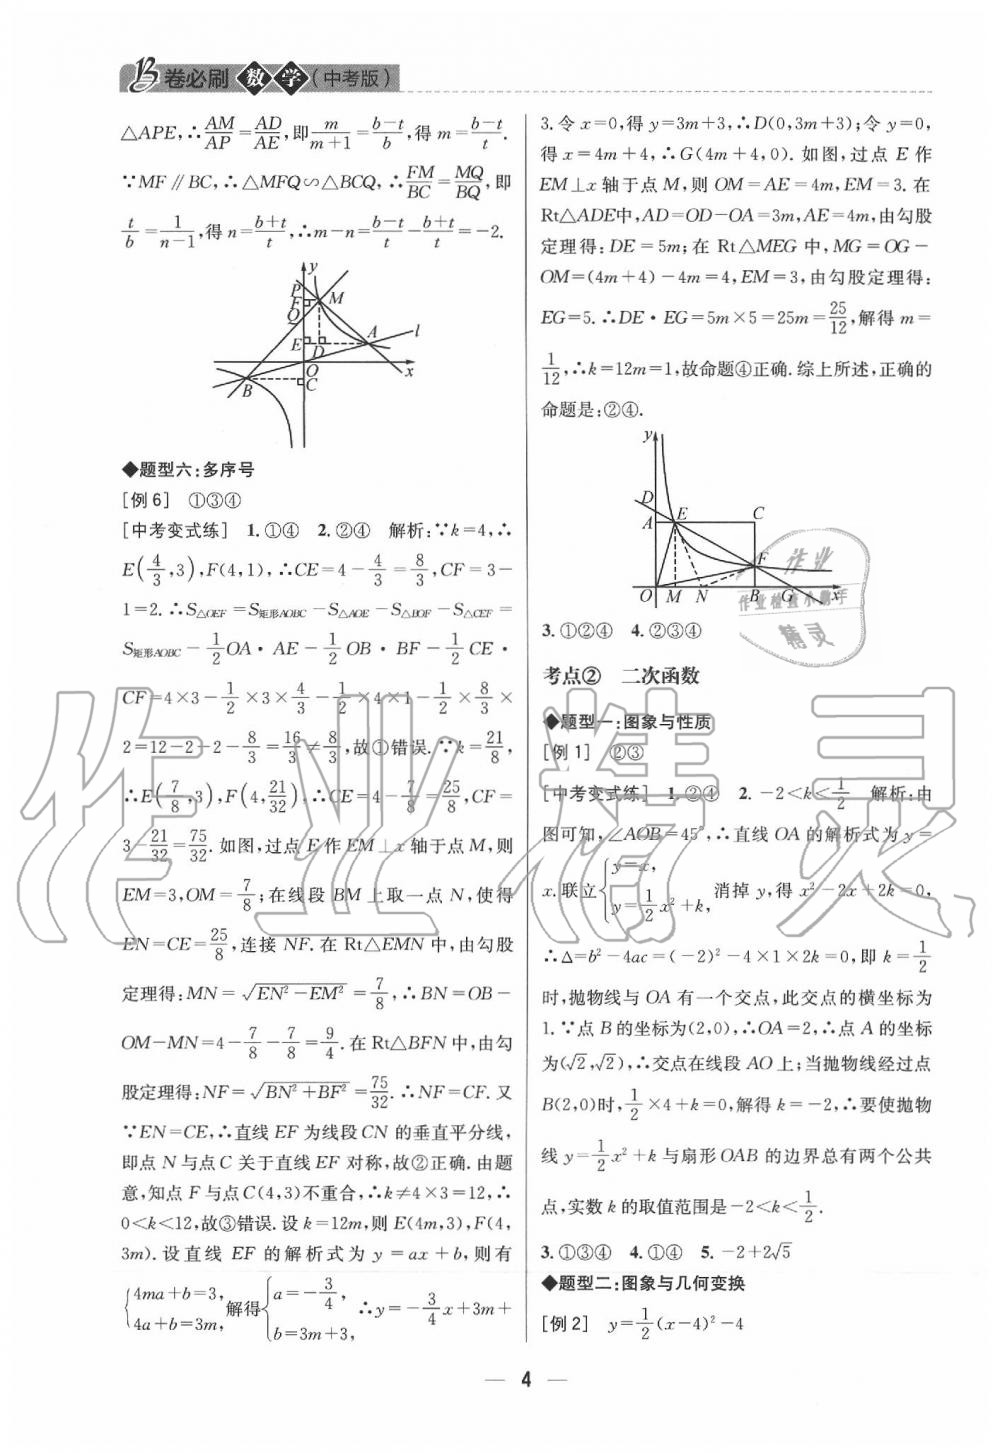 B卷必刷 数学(中考版)
△APE,∴AM/AP=AD/AE,即m/(m+1)=(b-t)/b,得m=(b-t)/t.
∵MF∥BC,∴△MFQ∽△BCQ,∴FM/BC=MQ/BQ,即
t/b=1/(n-1),得n=(b+t)/t,∴m-n=(b-t)/t-(b+t)/t=-2.
y
P
F
M
Q
A
l
E
D
O
x
B
C
◆题型六:多序号
[例6] ①③④
[中考变式练] 1.①④ 2.②④ 解析:∵k=4,∴
E(4/3,3),F(4,1),∴CE=4-4/3=8/3,CF=3-
1=2.∴S△OEF=S矩形AOBC-S△AOE-S△BOF-S△CEF=
S矩形AOBC-1/2OA·AE-1/2OB·BF-1/2CE·
CF=4×3-1/2×3×4/3-1/2×4×1-1/2×8/3×
2=12-2-2-8/3=16/3≠8/3,故①错误.∵k=21/8,
∴E(7/8,3),F(4,21/32),∴CE=4-7/8=25/8,CF=
3-21/32=75/32.如图,过点E作EM⊥x轴于点M,则
EM=3,OM=7/8;在线段BM上取一点N,使得
EN=CE=25/8,连接NF.在Rt△EMN中,由勾股
定理得:MN=√(EN²-EM²)=7/8,∴BN=OB-
OM-MN=4-7/8-7/8=9/4.在Rt△BFN中,由勾
股定理得:NF=√(BN²+BF²)=75/32.∴NF=CF.又
∵EN=CE,∴直线EF为线段CN的垂直平分线,
即点N与点C关于直线EF对称,故②正确.由题
意,知点F与点C(4,3)不重合,∴k≠4×3=12,∴
0<k<12,故③错误.设k=12m,则E(4m,3),F(4,
3m).设直线EF的解析式为y=ax+b,则有
{4ma+b=3, 4a+b=3m, 解得{a=-3/4, b=3m+3, ∴y=-3/4x+3m+
3.令x=0,得y=3m+3,∴D(0,3m+3);令y=0,
得x=4m+4,∴G(4m+4,0).如图,过点E作
EM⊥x轴于点M,则OM=AE=4m,EM=3.在
Rt△ADE中,AD=OD-OA=3m,AE=4m,由勾股
定理得:DE=5m;在Rt△MEG中,MG=OG-
OM=(4m+4)-4m=4,EM=3,由勾股定理得:
EG=5.∴DE·EG=5m×5=25m=25/12,解得m=
1/12,∴k=12m=1,故命题④正确.综上所述,正确的
命题是:②④.
y
D
A
E
C
F
O M N B G x
3.①②④ 4.②③④
考点② 二次函数
◆题型一:图象与性质
[例1] ②③
[中考变式练] 1.②④ 2.-2<k<1/2 解析:由
图可知,∠AOB=45°,∴直线OA的解析式为y=
x.联立{y=x, y=1/2x²+k, 消掉y,得x²-2x+2k=0,
∴Δ=b²-4ac=(-2)²-4×1×2k=0,即k=1/2
时,抛物线与OA有一个交点,此交点的横坐标为
1.∵点B的坐标为(2,0),∴OA=2,∴点A的坐标
为(√2,√2),∴交点在线段AO上;当抛物线经过点
B(2,0)时,1/2×4+k=0,解得k=-2,∴要使抛物
线y=1/2x²+k与扇形OAB的边界总有两个公共
点,实数k的取值范围是-2<k<1/2.
3.①③④ 4.①④ 5.-2+2√5
◆题型二:图象与几何变换
[例2] y=1/2(x-4)²-4
— 4 —
作业精灵
作业
作业检查小帮手
精灵